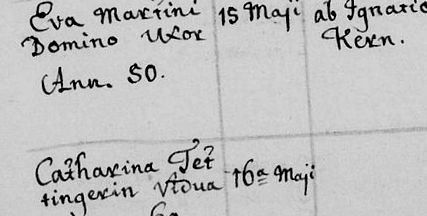 Eva Martini 15 Maji ab Ignatio
Domino Uxor Kern.
Ann. 50.
Catharina Tet
tingerin Vidua 16a Maji
60